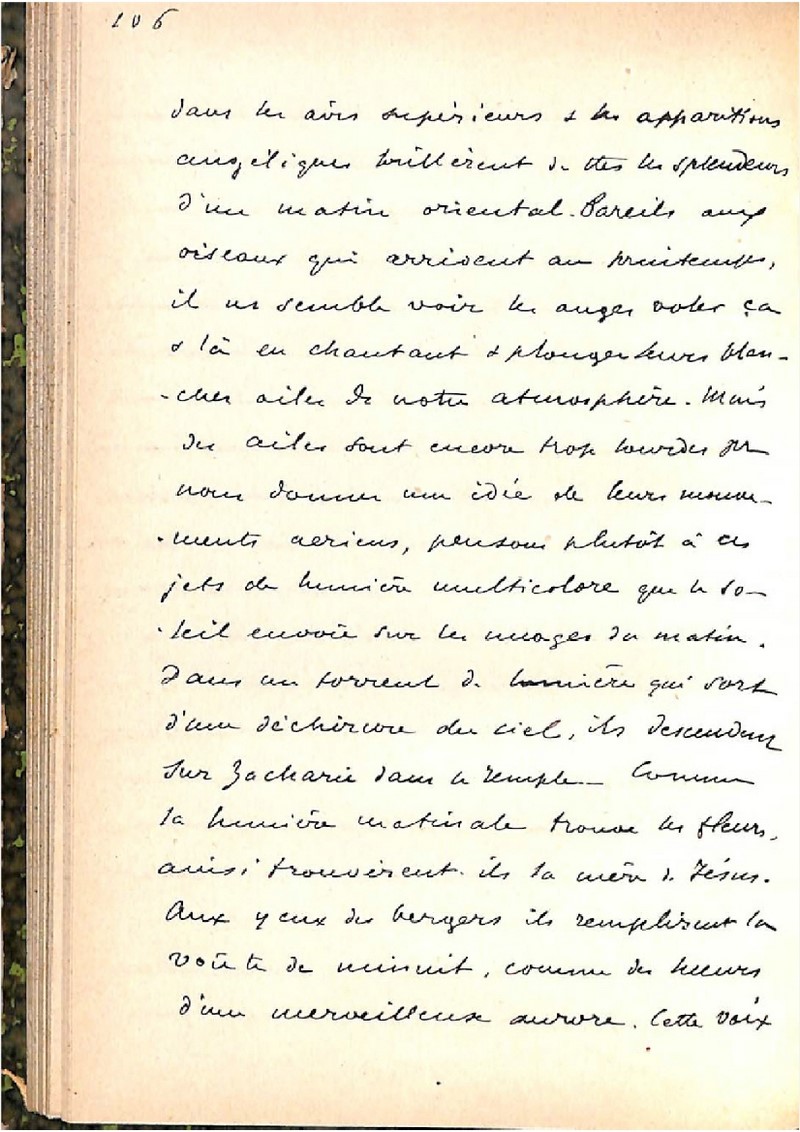 106
dans les airs supérieurs & les apparitions
angéliques brillèrent de ttes les splendeurs
d'un matin oriental. Pareils aux
oiseaux qui arrivent au printemps,
il us semble voir les anges voler ça
& là en chantant & plonger leurs blan-
-ches ailes ds notre atmosphère. Mais
des ailes sont encore trop lourdes pr
nous donner une idée de leurs mouve-
-ments aeriens, pensons plutôt à ces
jets de lumière multicolore que le so-
-leil envoie sur les nuages du matin.
Dans un torrent de lumière qui sort
d'une déchirure du ciel, ils descendent
sur Zacharie dans le Temple_ Comme
la lumière matinale trouve les fleurs,
ainsi trouvèrent-ils la mère de Jésus.
Aux yeux des bergers ils remplirent la
voûte de minuit, comme des lueurs
d'une merveilleuse aurore. Cette voix